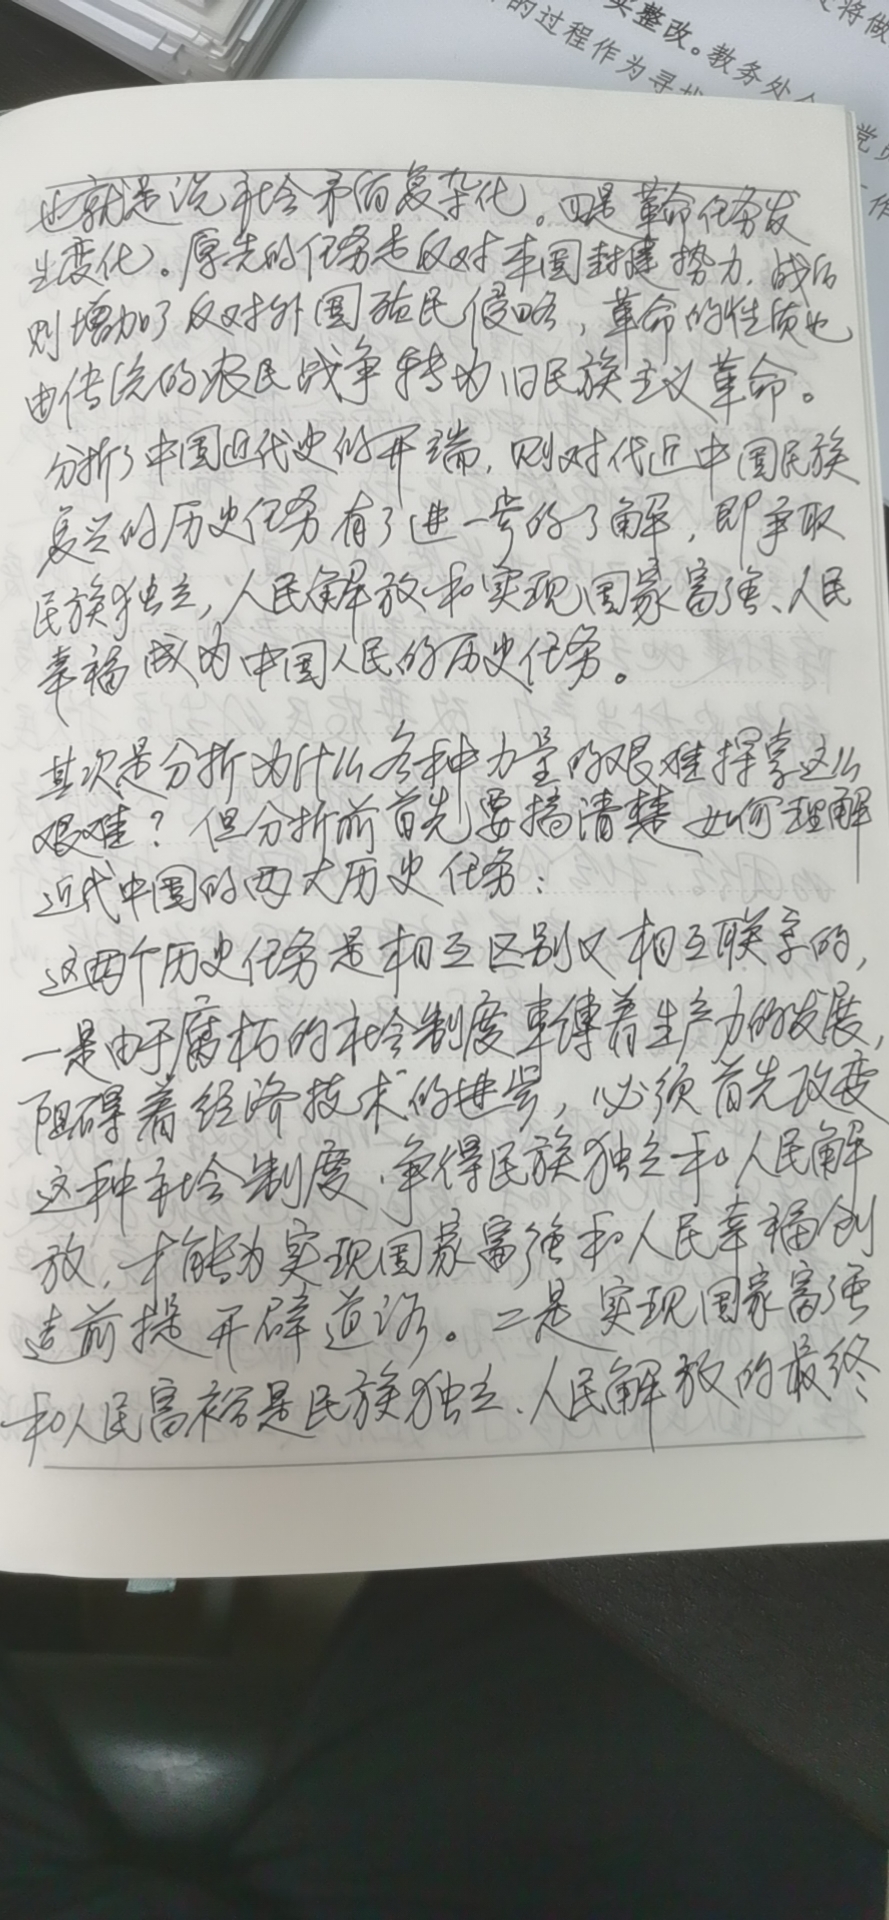 实整改。教务处
的过程作为寻找
将做
党员
作
也就是说社会矛盾复杂化。四是革命任务发
生变化。原先的任务是反对本国封建势力，战后
则增加了反对外国殖民侵略，革命的性质也
由传统的农民战争转为旧民族主义革命。
分析了中国近代史的开端，则对代近中国民族
复兴的历史任务有了进一步的了解，即争取
民族独立，人民解放和实现国家富强、人民
幸福成为中国人民的历史任务。
其次是分析为什么各种力量的艰难探索这么
艰难？但分析前首先要搞清楚如何理解
近代中国的两大历史任务：
这两个历史任务是相互区别又相互联系的，
一是由于腐朽的社会制度束缚着生产力的发展，
阻碍着经济技术的进步，必须首先改变
这种社会制度，争得民族独立和人民解
放，才能为实现国家富强和人民幸福创
造前提开辟道路。二是实现国家富强
和人民富裕是民族独立、人民解放的最终